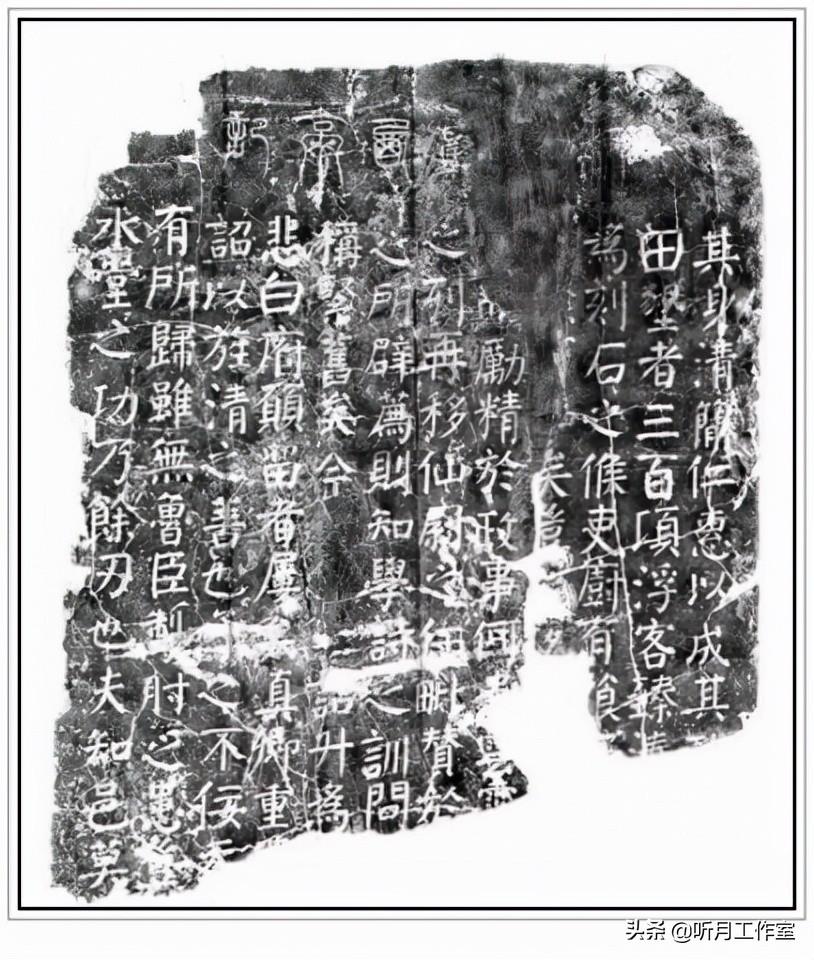 其身清簡仁惠以成其
田墾者三百頃浮客臻
為刻石之候吏廚有食
矣豈
勵精於政事
之列再移仙尉之任毗贊於
之所辟為則知學詩之訓間
稱緊舊矣今詔升為
悲白府願留者屢真卿重
詔以旌清之善也之不佞
有所歸雖無魯臣掣肘之患
水堂之功乃餘刃也夫知邑莫
記
头条 @听月工作室